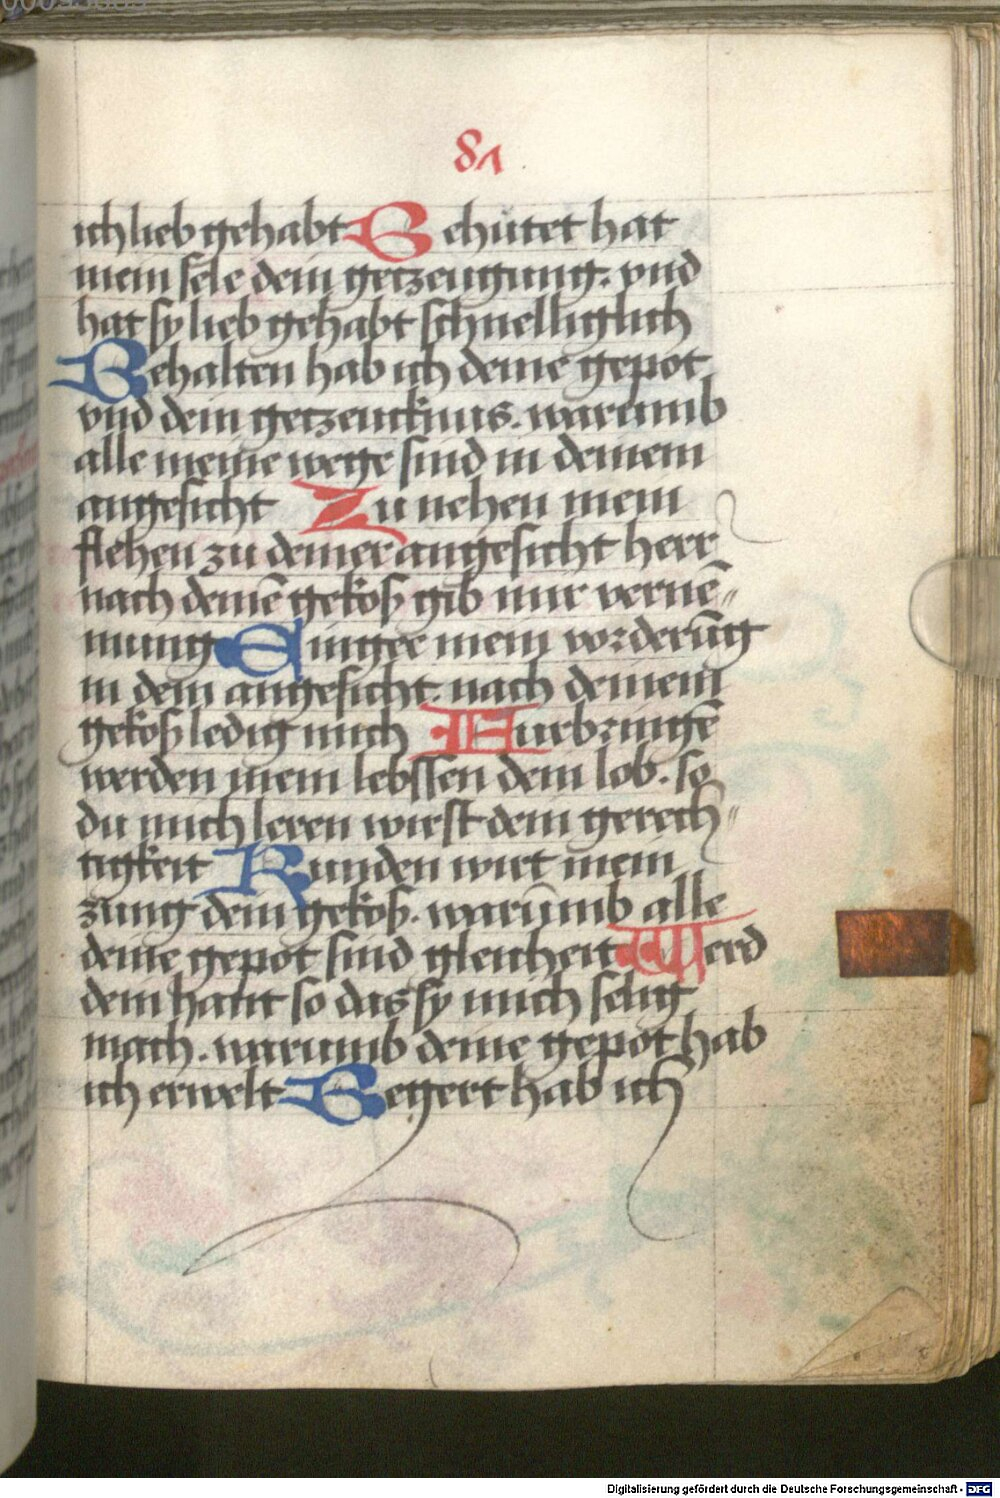 81
ich lieb gehabt Behütet hat
mein sele dein getzeugung. vnd
hat sy lieb gehabt schnelliglich
Behalten hab ich deine gepot
vnd dein getzeucknus. warumb
alle meine wege sind in deinem
angesicht Zu nehen mein
flehen zu deiner angesicht herr
nach deinē gekoß gib mir vernē-
mung Einngee mein vorderūg
in dein angesicht. nach deinem
gekoß ledig mich Furbringē
werden mein lebssen dein lob. so
du mich leren wirst dein gerech-
tigkeit Kunden wirt mein
zung dein gekoß. warūmb alle
deine gepot sind gleicheit Werd
dein hant so das sy mich selig
mach. warumb deine gepot hab
ich erwelt Begert hab ich
Digitalisierung gefördert durch die Deutsche Forschungsgemeinschaft - DFG